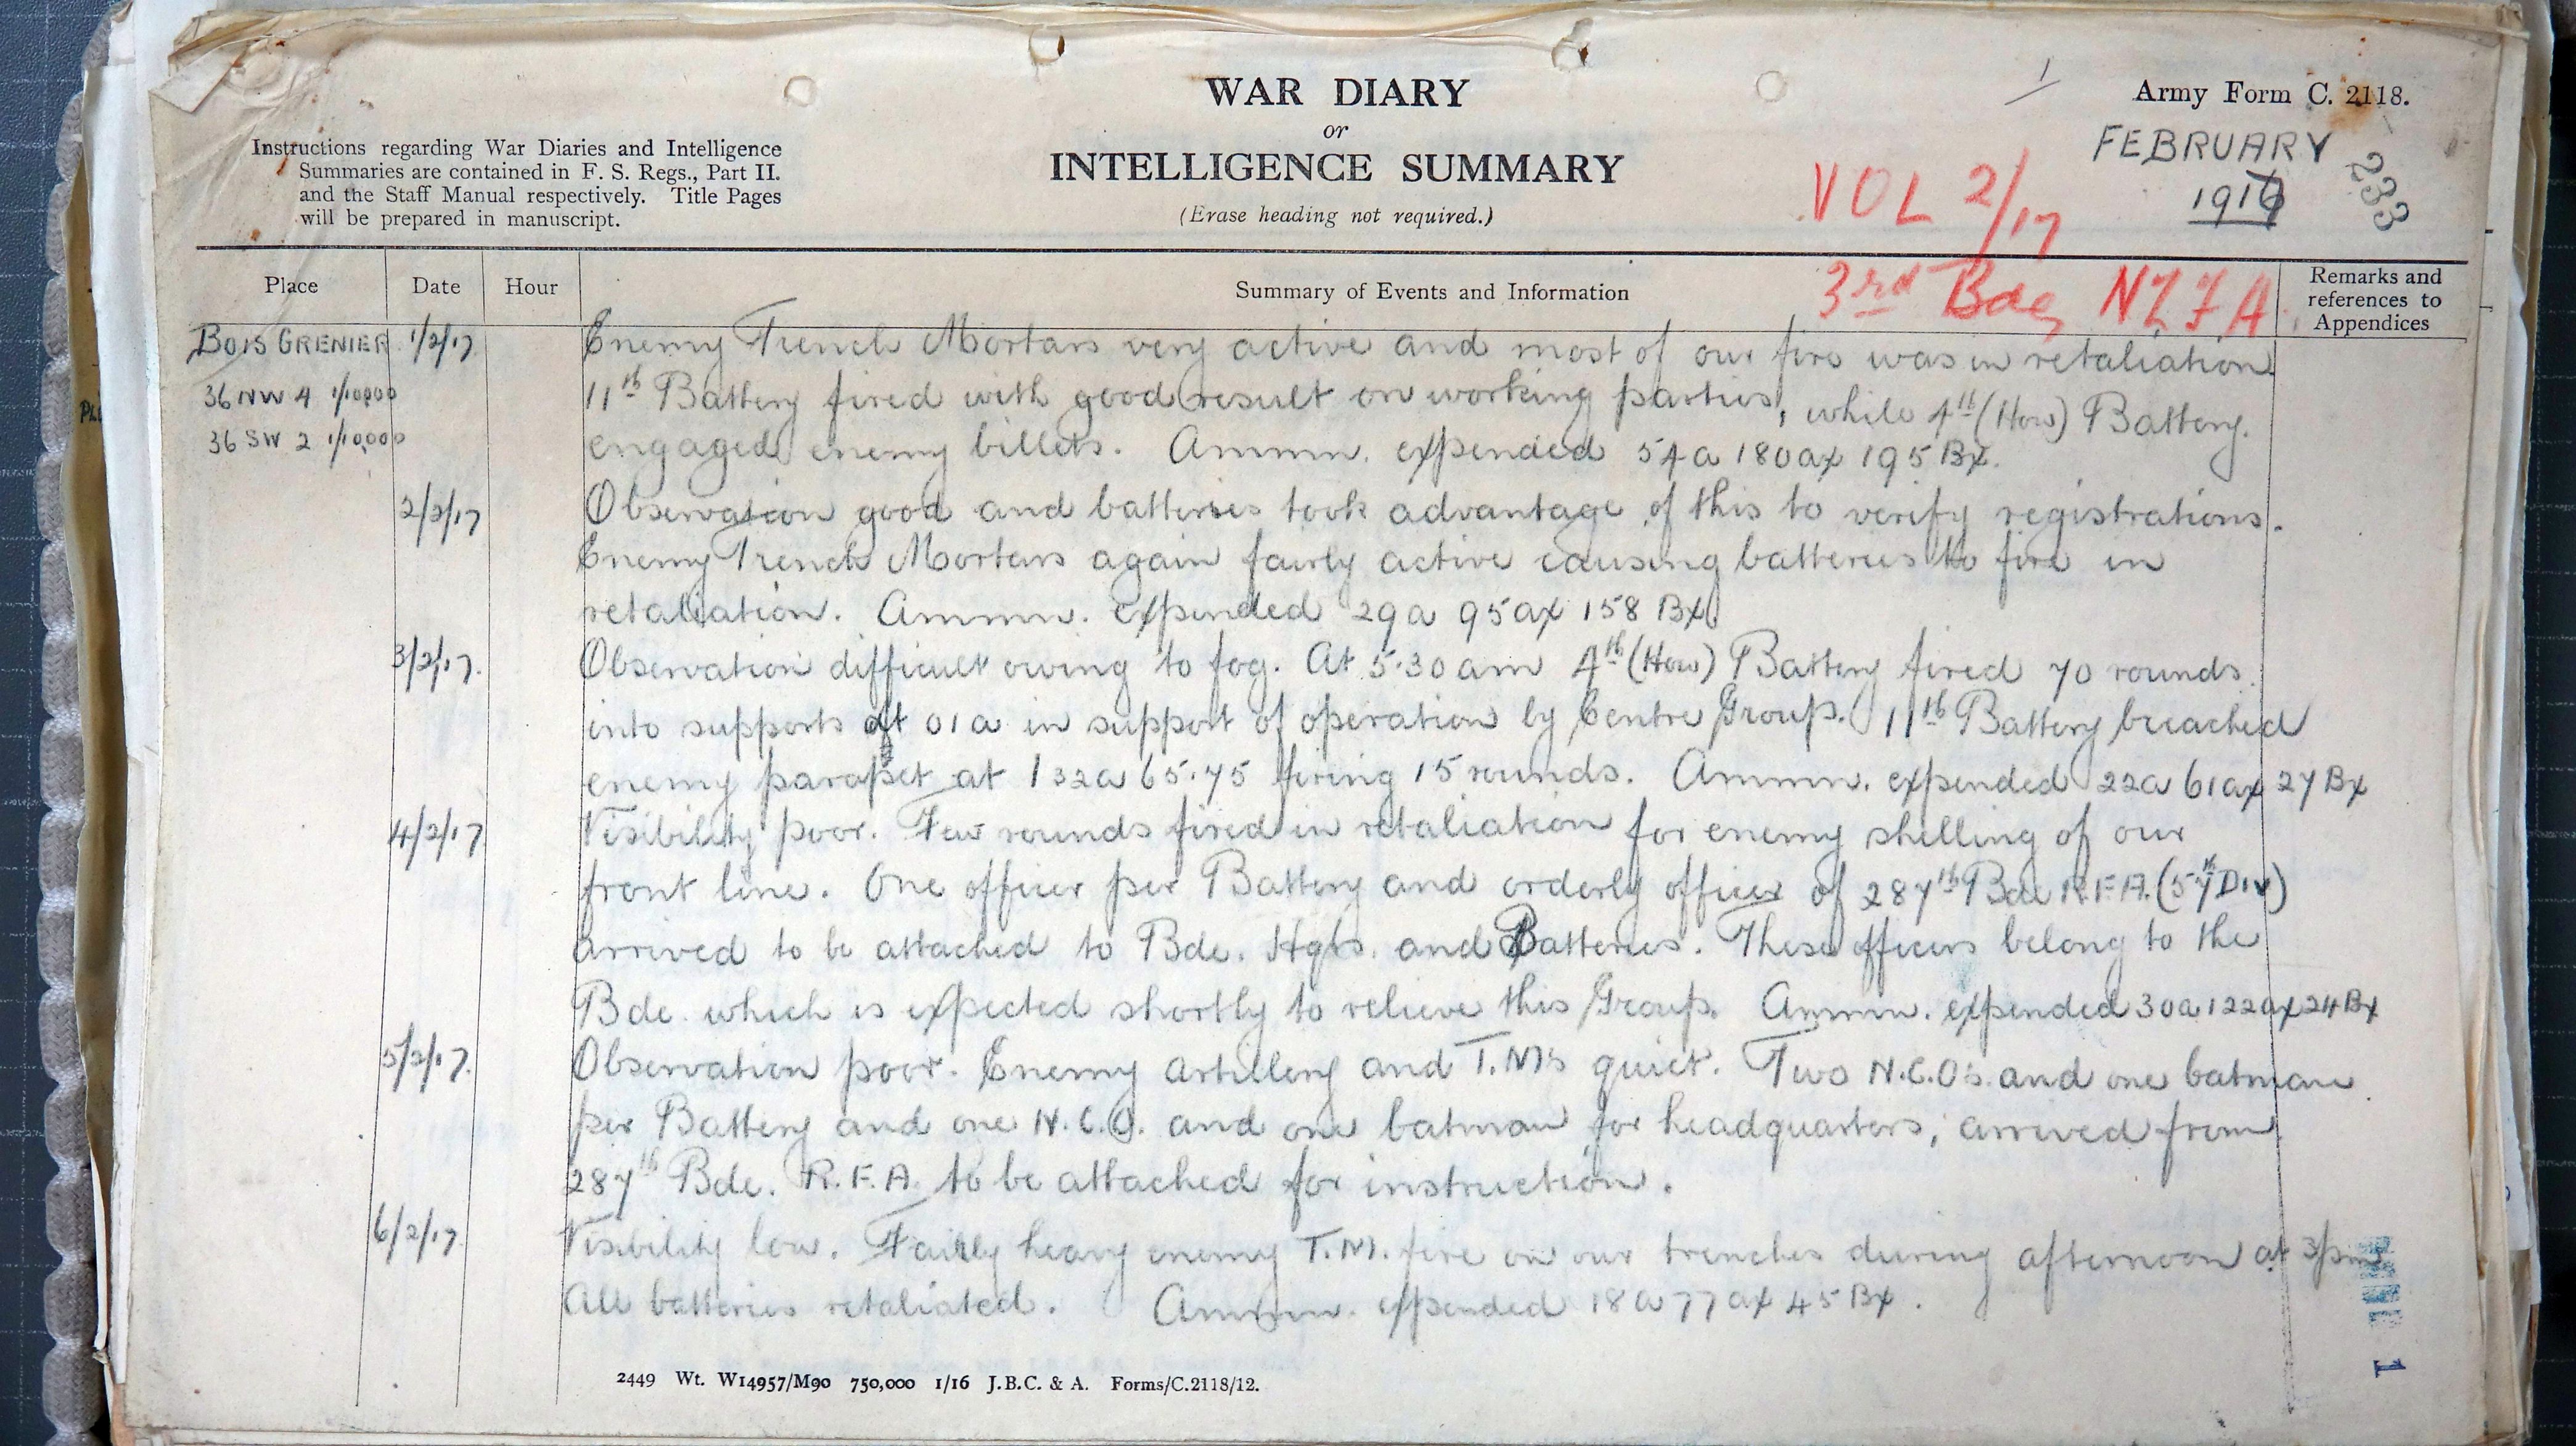 WAR DIARY
or
INTELLIGENCE SUMMARY
(Erase heading not required.)
Army Form C. 2118.
FEBRUARY
1917
233
Instructions regarding War Diaries and Intelligence
Summaries are contained in F. S. Regs., Part II.
and the Staff Manual respectively. Title Pages
will be prepared in manuscript.
VOL 2/17
3rd Bde NZFA
Place Date Hour Summary of Events and Information Remarks and references to Appendices
BOIS GRENIER 1/2/17 Enemy Trench Mortars very active and most of our fire was in retaliation
36 NW 4 1/10000 11th Battery fired with good result on working parties, while 4th (How) Battery.
36 SW 2 1/10,000 engaged enemy billets. Ammn. expended 54a 180ax 195 Bx.
2/2/17 Observation good and batteries took advantage of this to verify registrations.
Enemy Trench Mortars again fairly active causing batteries to fire in
retaliation. Ammn. expended 29a 95ax 158 Bx.
3/2/17. Observation difficult owing to fog. At 5.30 am 4th (How) Battery fired 70 rounds
into supports at 01a in support of operation by Centre Group. 11th Battery breached
enemy parapet at I 32a 65.75 firing 15 rounds. Ammn. expended 22a 61ax 27 Bx
4/2/17 Visibility poor. Few rounds fired in retaliation for enemy shelling of our
front line. One officer per Battery and orderly officer of 287th Bde R.F.A. (57th Div)
arrived to be attached to Bde. Hqrs. and Batteries. These officers belong to the
Bde. which is expected shortly to relieve this Group. Ammn. expended 30a 122ax 24 Bx
5/2/17. Observation poor. Enemy artillery and T.M's quiet. Two N.C.O's and one batman
per Battery and one N.C.O. and one batman for headquarters, arrived from
287th Bde. R.F.A. to be attached for instruction.
6/2/17. Visibility low. Fairly heavy enemy T.M. fire on our trenches during afternoon at 3pm
All batteries retaliated. Ammn. expended 18a 77ax 45 Bx.
2449 Wt. W14957/M90 750,000 1/16 J.B.C. & A. Forms/C.2118/12.
1